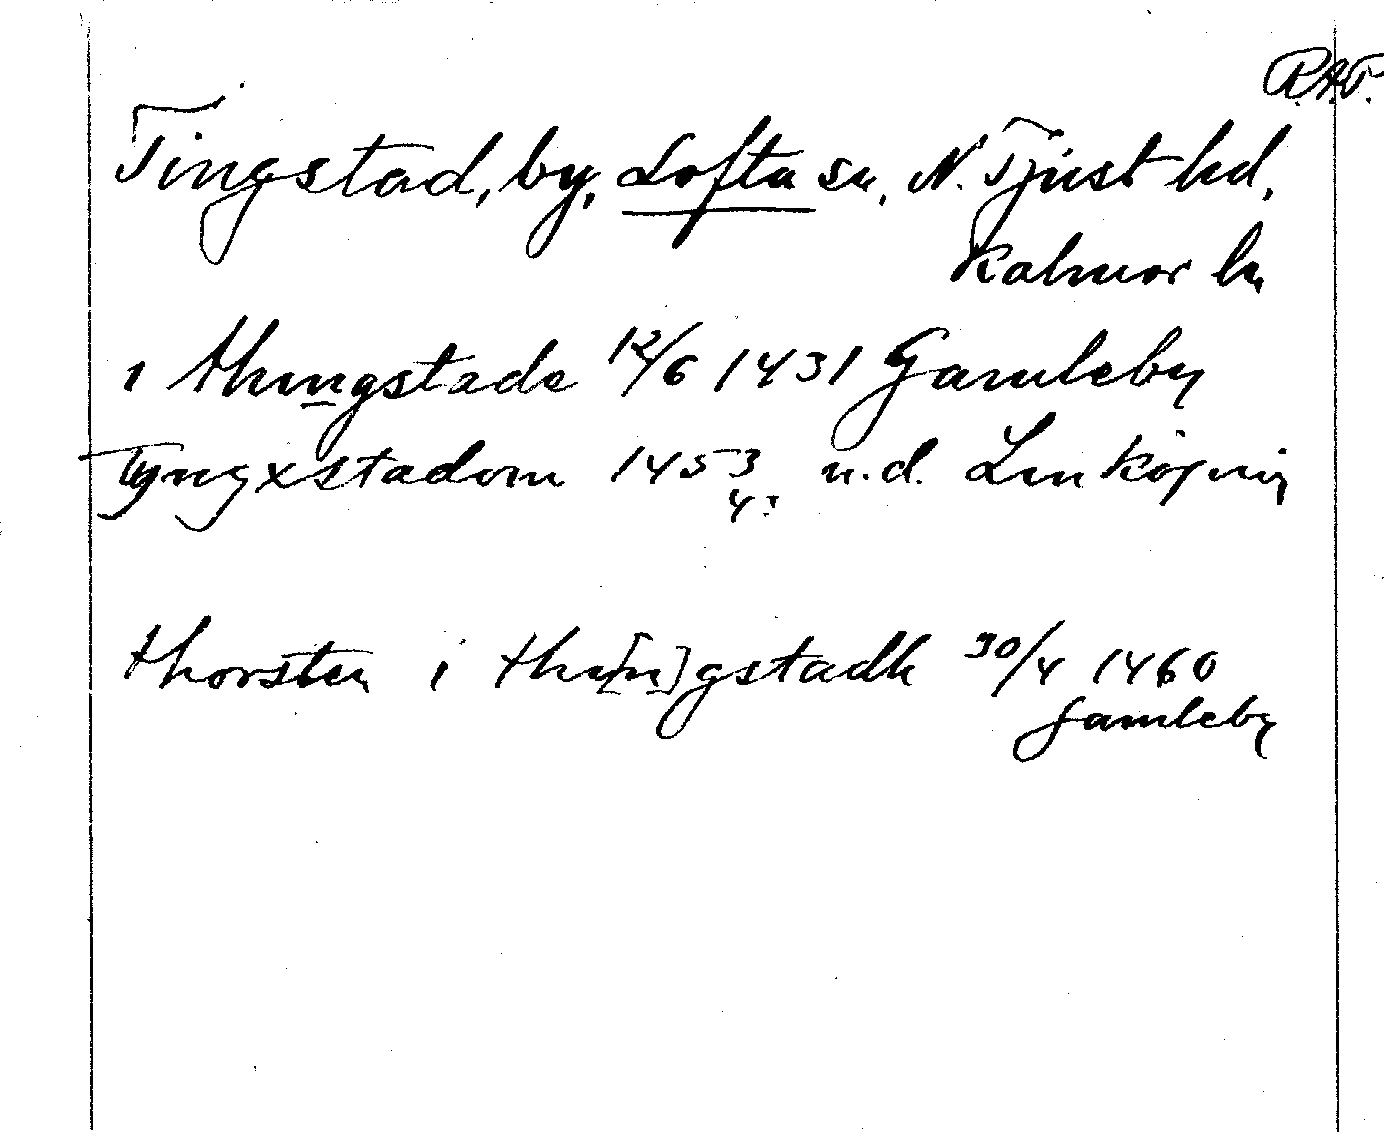 R.A.P.
Tingstad, by, Lofta sn, N. Tjust hd,
Kalmar ln
i thingstade 12/6 1431 Gamleby
Tyngxstadom 1453 u.d. Linköping
4:
thorsten i thi[n]gstadh 30/4 1460
Gamleby